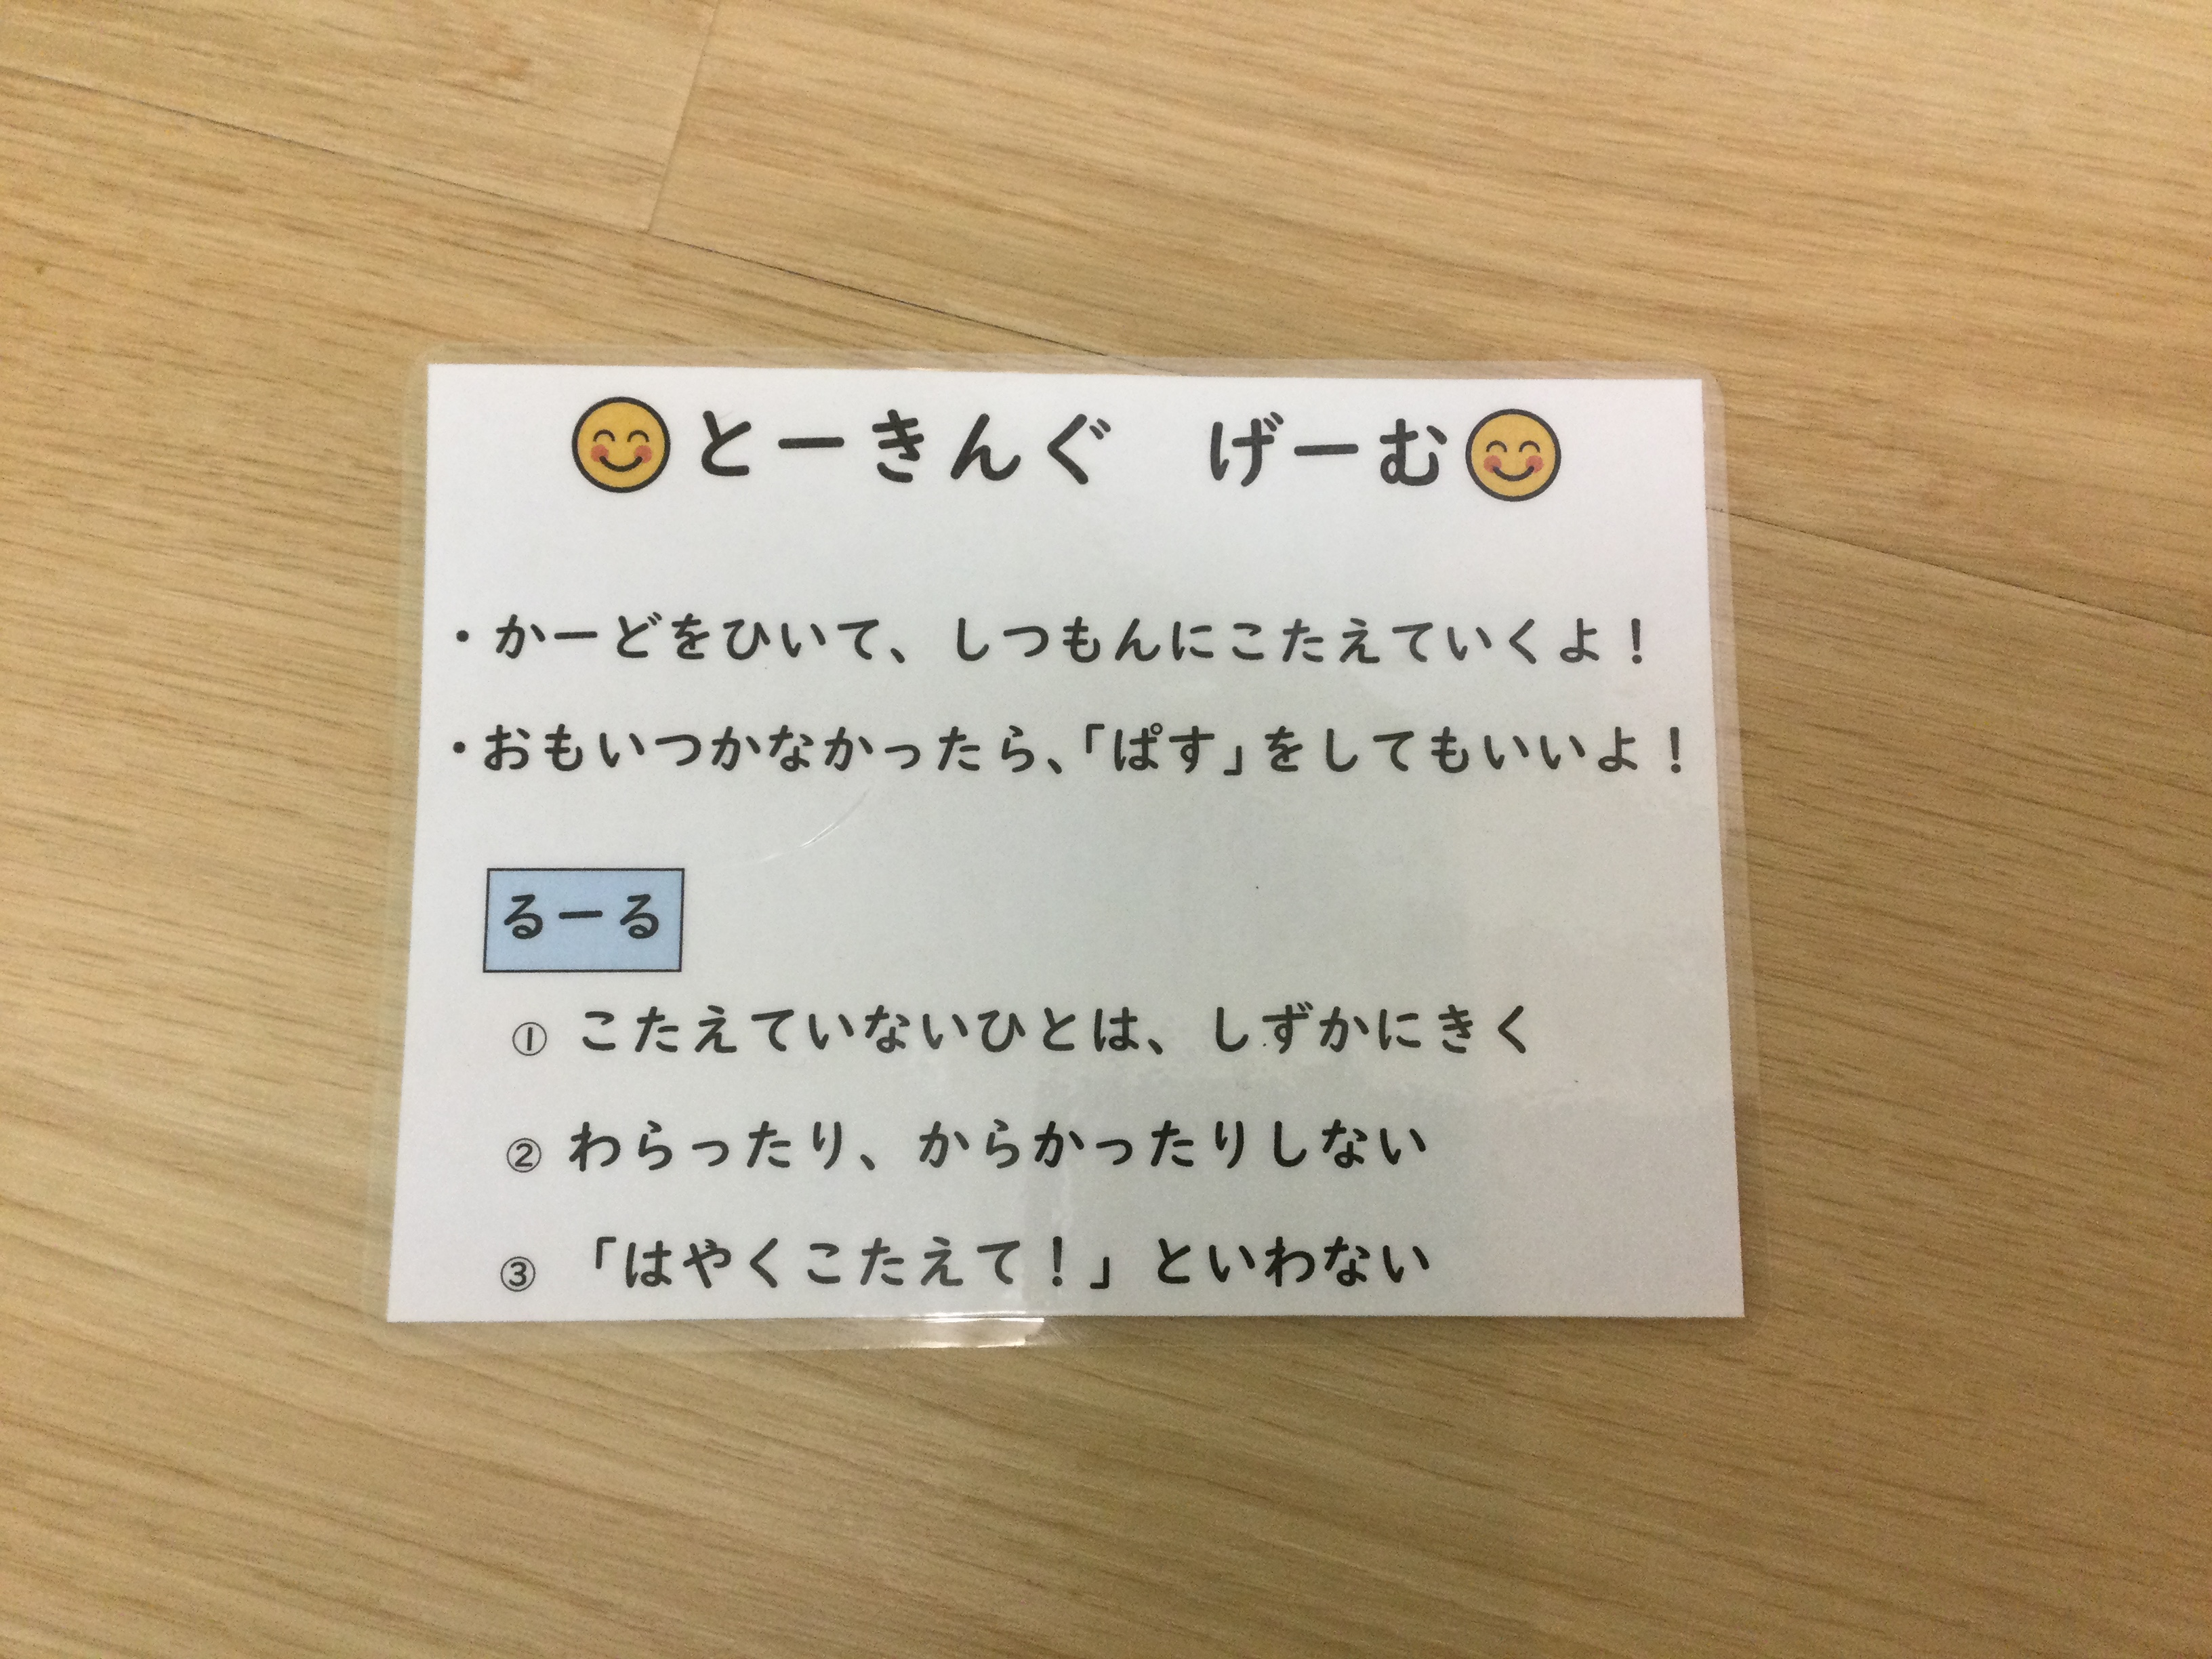 とーきんぐ　げーむ
・かーどをひいて、しつもんにこたえていくよ！
・おもいつかなかったら、「ぱす」をしてもいいよ！
るーる
① こたえていないひとは、しずかにきく
② わらったり、からかったりしない
③ 「はやくこたえて！」といわない